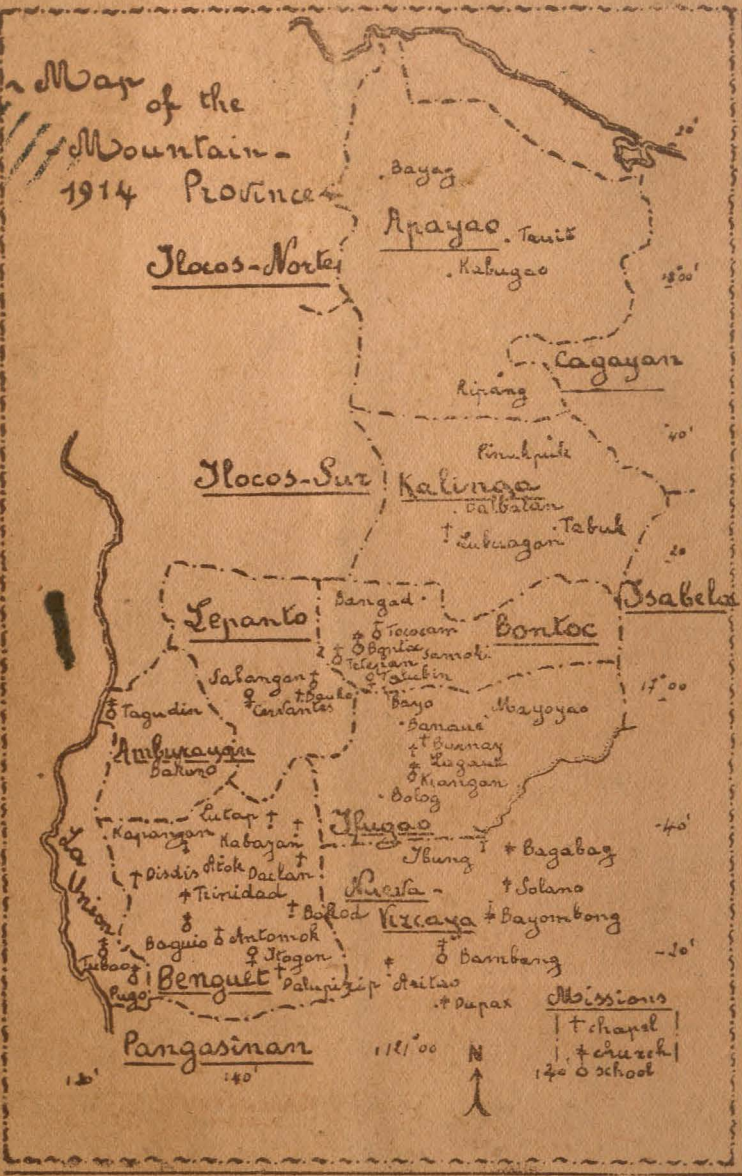 Map
of the
Mountain-
1914 Province
Bayag
Apayao
Tauit
Kabugao
Ilocos-Norte
20'
18°00'
Cagayan
Ripang
40'
Pinukpuk
Ilocos-Sur
Kalinga
Balbalan
Tabuk
Lubuagan
20
Isabela
Lepanto
Bangad
Bontoc
Tococan
Bontoc
Samoki
Tetepan
Talubin
17°00
Salangan
Bauko
Cervantes
Tagudin
Bayo
Mayoyao
Banaue
Burnay
Lagaue
Kiangan
Bolog
Amburayan
Bakuno
Lutap
Kapangan
Kabayan
Ifugao
-40'
Ibung
Bagabag
Disdis
Atok
Daclan
Trinidad
Nueva-
Vizcaya
Solano
Bokod
Bayombong
La Union
Baguio
Antomok
Itogon
Bambang
-20'
Tubao
Pugo
Benguet
Palupizip
Aritao
Dupax
Missions
† chapel
church
school
Pangasinan
121°00
N
120°
40'